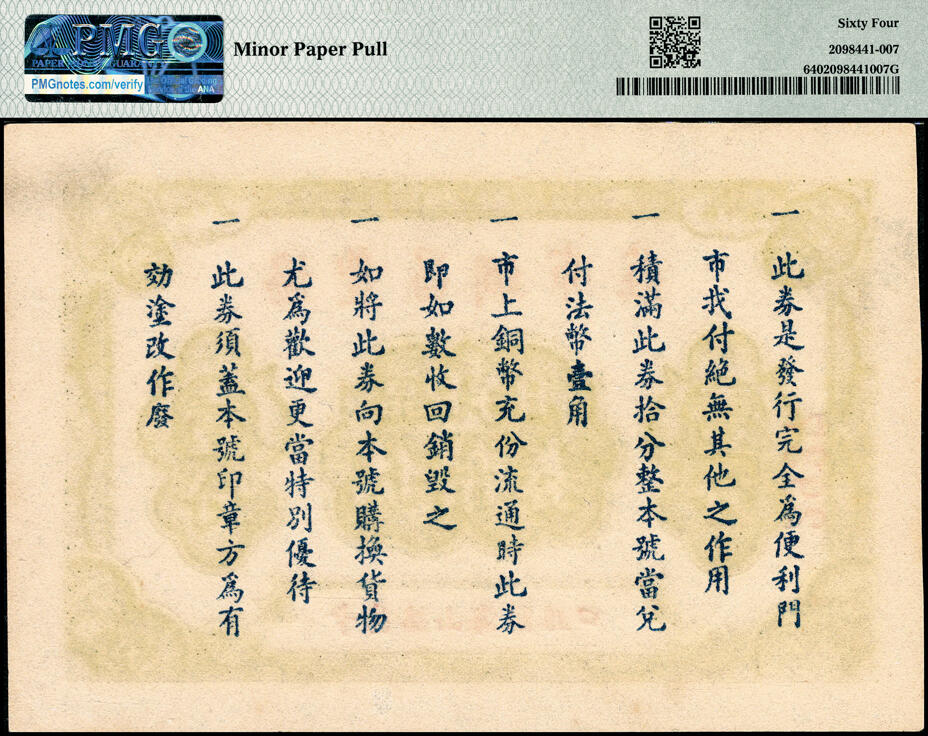 PMG
PAPER MONEY GUARANTY
PMGnotes.com/verify
Minor Paper Pull
Sixty Four
2098441-007
6402098441007G
一 此券是發行完全為便利門
市找付絕無其他之作用
一 積滿此券拾分整本號當兌
付法幣壹角
一 市上銅幣充份流通時此券
即如數收回銷毀之
一 如將此券向本號購換貨物
尤為歡迎更當特別優待
一 此券須蓋本號印章方為有
効塗改作廢